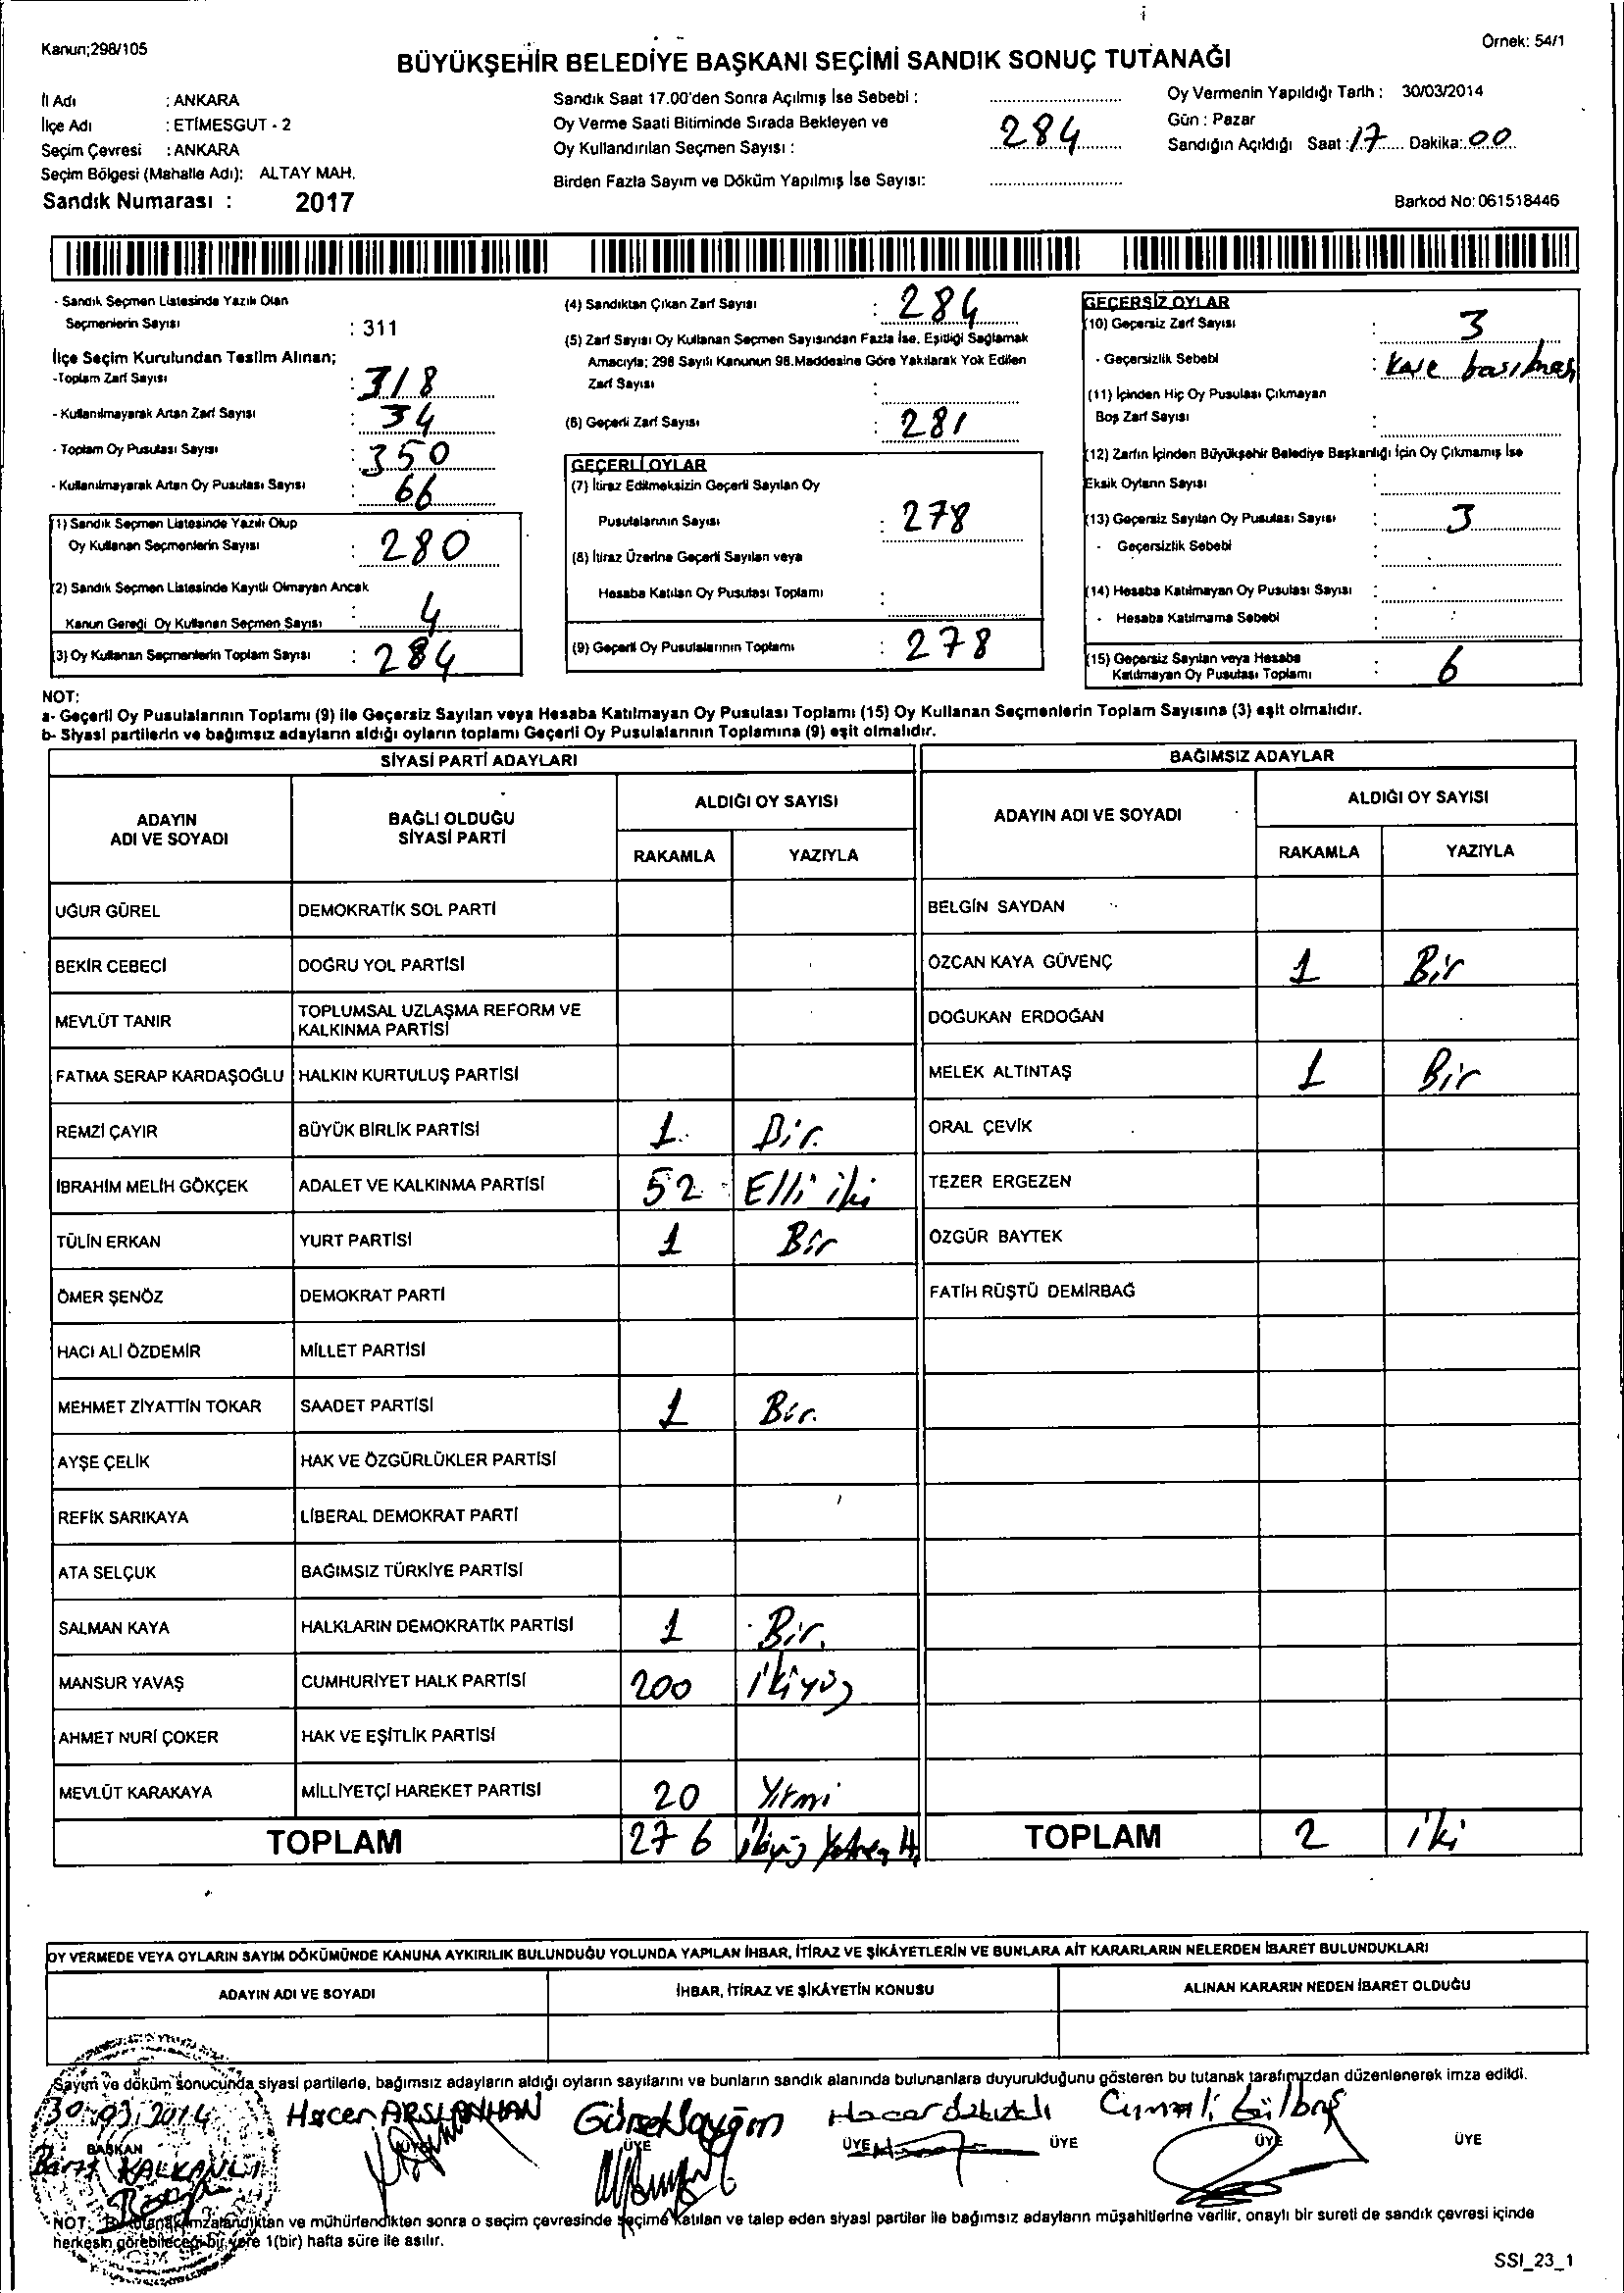 Kanun;298/105
Örnek: 54/1
BÜYÜKŞEHİR BELEDİYE BAŞKANI SEÇİMİ SANDIK SONUÇ TUTANAĞI
İl Adı : ANKARA
İlçe Adı : ETİMESGUT - 2
Seçim Çevresi : ANKARA
Seçim Bölgesi (Mahalle Adı): ALTAY MAH.
Sandık Numarası : 2017
Sandık Saat 17.00'den Sonra Açılmış İse Sebebi :
Oy Verme Saati Bitiminde Sırada Bekleyen ve
Oy Kullandırılan Seçmen Sayısı : 284
Birden Fazla Sayım ve Döküm Yapılmış İse Sayısı:
Oy Vermenin Yapıldığı Tarih : 30/03/2014
Gün : Pazar
Sandığın Açıldığı Saat : 17 Dakika: 00
Barkod No: 061518446
- Sandık Seçmen Listesinde Yazılı Olan
Seçmenlerin Sayısı : 311
İlçe Seçim Kurulundan Teslim Alınan;
-Toplam Zarf Sayısı : 318
- Kullanılmayarak Artan Zarf Sayısı : 34
- Toplam Oy Pusulası Sayısı : 350
- Kullanılmayarak Artan Oy Pusulası Sayısı : 66
(1) Sandık Seçmen Listesinde Yazılı Olup
Oy Kullanan Seçmenlerin Sayısı : 280
(2) Sandık Seçmen Listesinde Kayıtlı Olmayan Ancak
Kanun Gereği Oy Kullanan Seçmen Sayısı : 4
(3) Oy Kullanan Seçmenlerin Toplam Sayısı : 284
(4) Sandıktan Çıkan Zarf Sayısı : 284
(5) Zarf Sayısı Oy Kullanan Seçmen Sayısından Fazla İse, Eşitliği Sağlamak
Amacıyla; 298 Sayılı Kanunun 98.Maddesine Göre Yakılarak Yok Edilen
Zarf Sayısı :
(6) Geçerli Zarf Sayısı : 281
GEÇERLİ OYLAR
(7) İtiraz Edilmeksizin Geçerli Sayılan Oy
Pusulalarının Sayısı : 278
(8) İtiraz Üzerine Geçerli Sayılan veya
Hesaba Katılan Oy Pusulası Toplamı :
(9) Geçerli Oy Pusulalarının Toplamı : 278
GEÇERSİZ OYLAR
(10) Geçersiz Zarf Sayısı : 3
- Geçersizlik Sebebi :
(11) İçinden Hiç Oy Pusulası Çıkmayan
Boş Zarf Sayısı :
(12) Zarfın İçinden Büyükşehir Belediye Başkanlığı İçin Oy Çıkmamış İse
Eksik Oyların Sayısı :
(13) Geçersiz Sayılan Oy Pusulası Sayısı : 3
- Geçersizlik Sebebi :
(14) Hesaba Katılmayan Oy Pusulası Sayısı :
- Hesaba Katılmama Sebebi :
(15) Geçersiz Sayılan veya Hesaba
Katılmayan Oy Pusulası Toplamı : 6
NOT:
a- Geçerli Oy Pusulalarının Toplamı (9) ile Geçersiz Sayılan veya Hesaba Katılmayan Oy Pusulası Toplamı (15) Oy Kullanan Seçmenlerin Toplam Sayısına (3) eşit olmalıdır.
b- Siyasi partilerin ve bağımsız adayların aldığı oyların toplamı Geçerli Oy Pusulalarının Toplamına (9) eşit olmalıdır.
SİYASİ PARTİ ADAYLARI
BAĞIMSIZ ADAYLAR
ADAYIN ADI VE SOYADI
BAĞLI OLDUĞU SİYASİ PARTİ
ALDIĞI OY SAYISI
RAKAMLA YAZIYLA
ADAYIN ADI VE SOYADI
ALDIĞI OY SAYISI
RAKAMLA YAZIYLA
UĞUR GÜREL DEMOKRATİK SOL PARTİ BELGİN SAYDAN
BEKİR CEBECİ DOĞRU YOL PARTİSİ ÖZCAN KAYA GÜVENÇ 1 Bir
MEVLÜT TANIR TOPLUMSAL UZLAŞMA REFORM VE KALKINMA PARTİSİ DOĞUKAN ERDOĞAN
FATMA SERAP KARDAŞOĞLU HALKIN KURTULUŞ PARTİSİ MELEK ALTINTAŞ 1 Bir
REMZİ ÇAYIR BÜYÜK BİRLİK PARTİSİ 1 Bir. ORAL ÇEVİK
İBRAHİM MELİH GÖKÇEK ADALET VE KALKINMA PARTİSİ 52 Elli iki TEZER ERGEZEN
TÜLİN ERKAN YURT PARTİSİ 1 Bir ÖZGÜR BAYTEK
ÖMER ŞENÖZ DEMOKRAT PARTİ FATİH RÜŞTÜ DEMİRBAĞ
HACI ALİ ÖZDEMİR MİLLET PARTİSİ
MEHMET ZİYATTİN TOKAR SAADET PARTİSİ 1 Bir.
AYŞE ÇELİK HAK VE ÖZGÜRLÜKLER PARTİSİ
REFİK SARIKAYA LİBERAL DEMOKRAT PARTİ
ATA SELÇUK BAĞIMSIZ TÜRKİYE PARTİSİ
SALMAN KAYA HALKLARIN DEMOKRATİK PARTİSİ 1 Bir.
MANSUR YAVAŞ CUMHURİYET HALK PARTİSİ 200 ikiyüz
AHMET NURİ ÇOKER HAK VE EŞİTLİK PARTİSİ
MEVLÜT KARAKAYA MİLLİYETÇİ HAREKET PARTİSİ 20 Yirmi
TOPLAM 276 ikiyüz TOPLAM 2 iki
OY VERMEDE VEYA OYLARIN SAYIM DÖKÜMÜNDE KANUNA AYKIRILIK BULUNDUĞU YOLUNDA YAPILAN İHBAR, İTİRAZ VE ŞİKÂYETLERİN VE BUNLARA AİT KARARLARIN NELERDEN İBARET BULUNDUKLARI
ADAYIN ADI VE SOYADI İHBAR, İTİRAZ VE ŞİKÂYETİN KONUSU ALINAN KARARIN NEDEN İBARET OLDUĞU
Sayım ve döküm sonucunda siyasi partilerle, bağımsız adayların aldığı oyların sayılarını ve bunların sandık alanında bulunanlara duyurulduğunu gösteren bu tutanak tarafımızdan düzenlenerek imza edildi.
30.03.2014 Hacer ARSLANHAN Hacer Cumali
BAŞKAN ÜYE ÜYE ÜYE ÜYE ÜYE ÜYE
NOT: Bu tutanak imzalandıktan ve mühürlendikten sonra o seçim çevresinde seçime katılan ve talep eden siyasi partiler ile bağımsız adayların müşahitlerine verilir, onaylı bir sureti de sandık çevresi içinde
herkesin görebileceği bir yere 1(bir) hafta süre ile asılır.
SSI_23_1